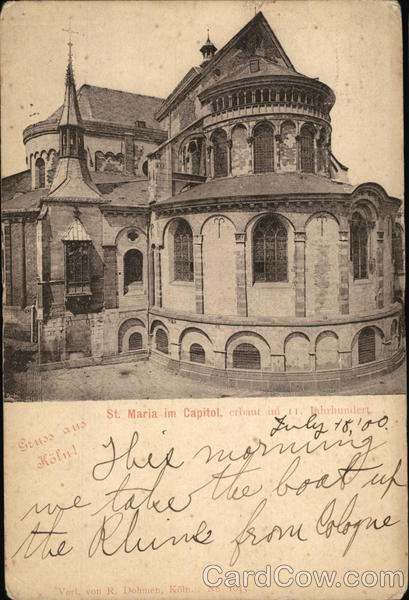 St. Maria im Capitol, erbaut im 11. Jahrhundert.
Gruss aus
Köln!
July 18, '00
This morning
we take the boat up
the Rhine from Cologne
Verl. von R. Dohmen, Köln. No. 1043.
CardCow.com